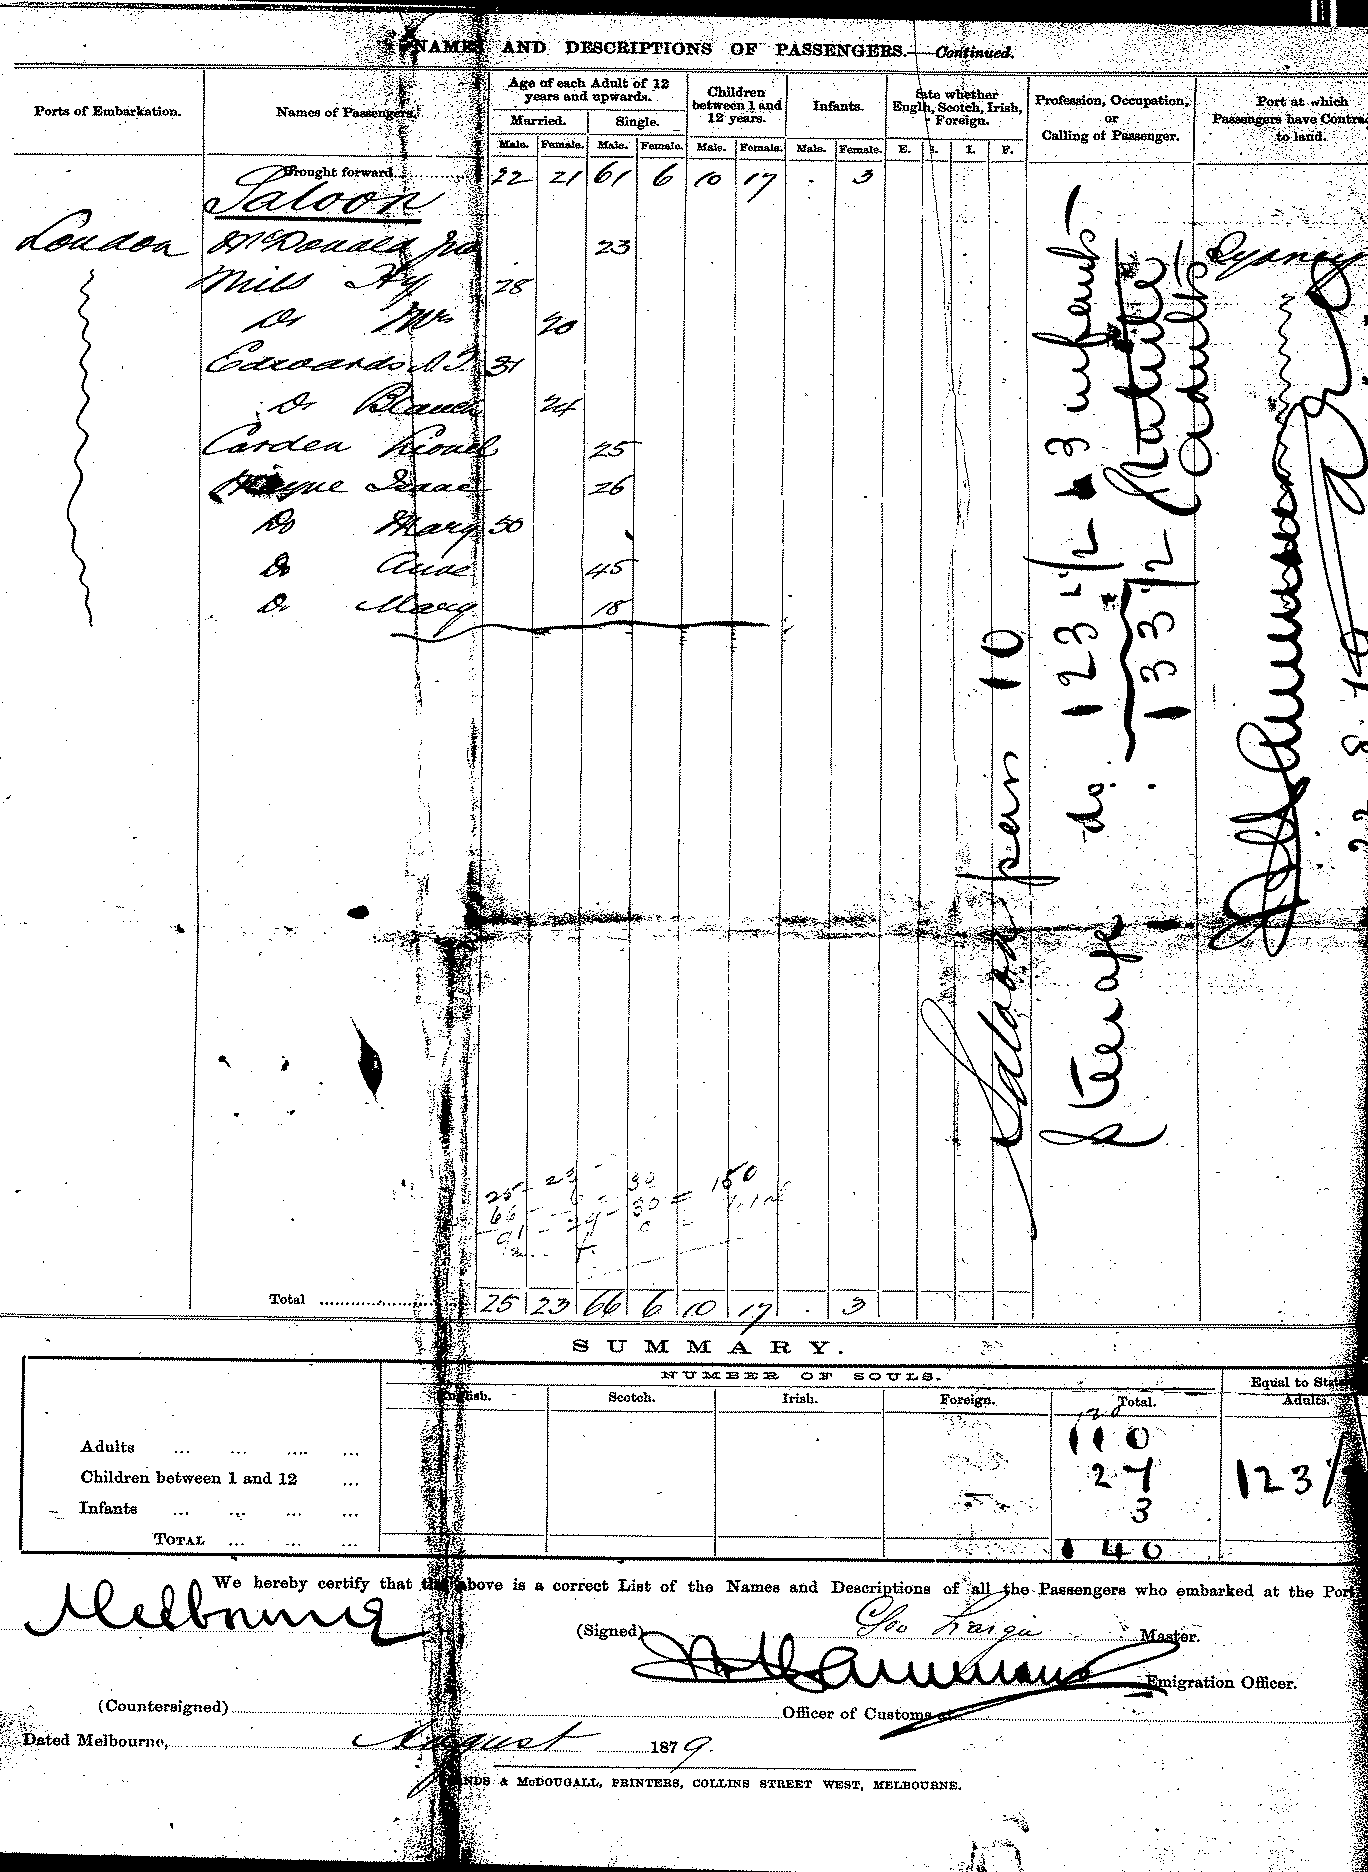 NAMES AND DESCRIPTIONS OF PASSENGERS.—Continued.
Ports of Embarkation. Names of Passengers. Age of each Adult of 12 years and upwards. Children between 1 and 12 years. Infants. State whether Englh, Scotch, Irish, Foreign. Profession, Occupation, or Calling of Passenger. Port at which Passengers have Contra to land.
Married. Single.
Male. Female. Male. Female. Male. Female. Male. Female. E. S. I. F.
Brought forward 22 21 61 6 10 17 . 3
Saloon
London McDonald Jno 23 Sydney
Mills Hy 28
Do Mrs 20
Edwards A.T. 31
Do Blanch 24
Carden Lionel 25
Hayne Isaac 26
Do Mary 50
Do Anne 45
Do Mary 18
Saloon pass 10
Steerage do. 123 1/2 & 3 infants
133 1/2 Statute Adults
25 - 23 - 39
66 - 6 - 30 = 150
Total 25 23 66 6 10 17 . 3
SUMMARY.
NUMBER OF SOULS.
English. Scotch. Irish. Foreign. Total. Equal to State Adults.
120
Adults ... ... ... ... 110
Children between 1 and 12 ... 27 123/
Infants ... ... ... ... 3
TOTAL ... ... ... 140
We hereby certify that the above is a correct List of the Names and Descriptions of all the Passengers who embarked at the Port
Melbourne
(Signed) Geo Master.
Emigration Officer.
(Countersigned)
Officer of Customs at
Dated Melbourne, August 1879.
SANDS & McDOUGALL, PRINTERS, COLLINS STREET WEST, MELBOURNE.